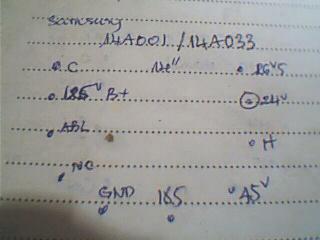 Samsung
14A001 / 14A033
C 14" 16V5
125V B+ 24V
ABL H
NC
GND 185 45V